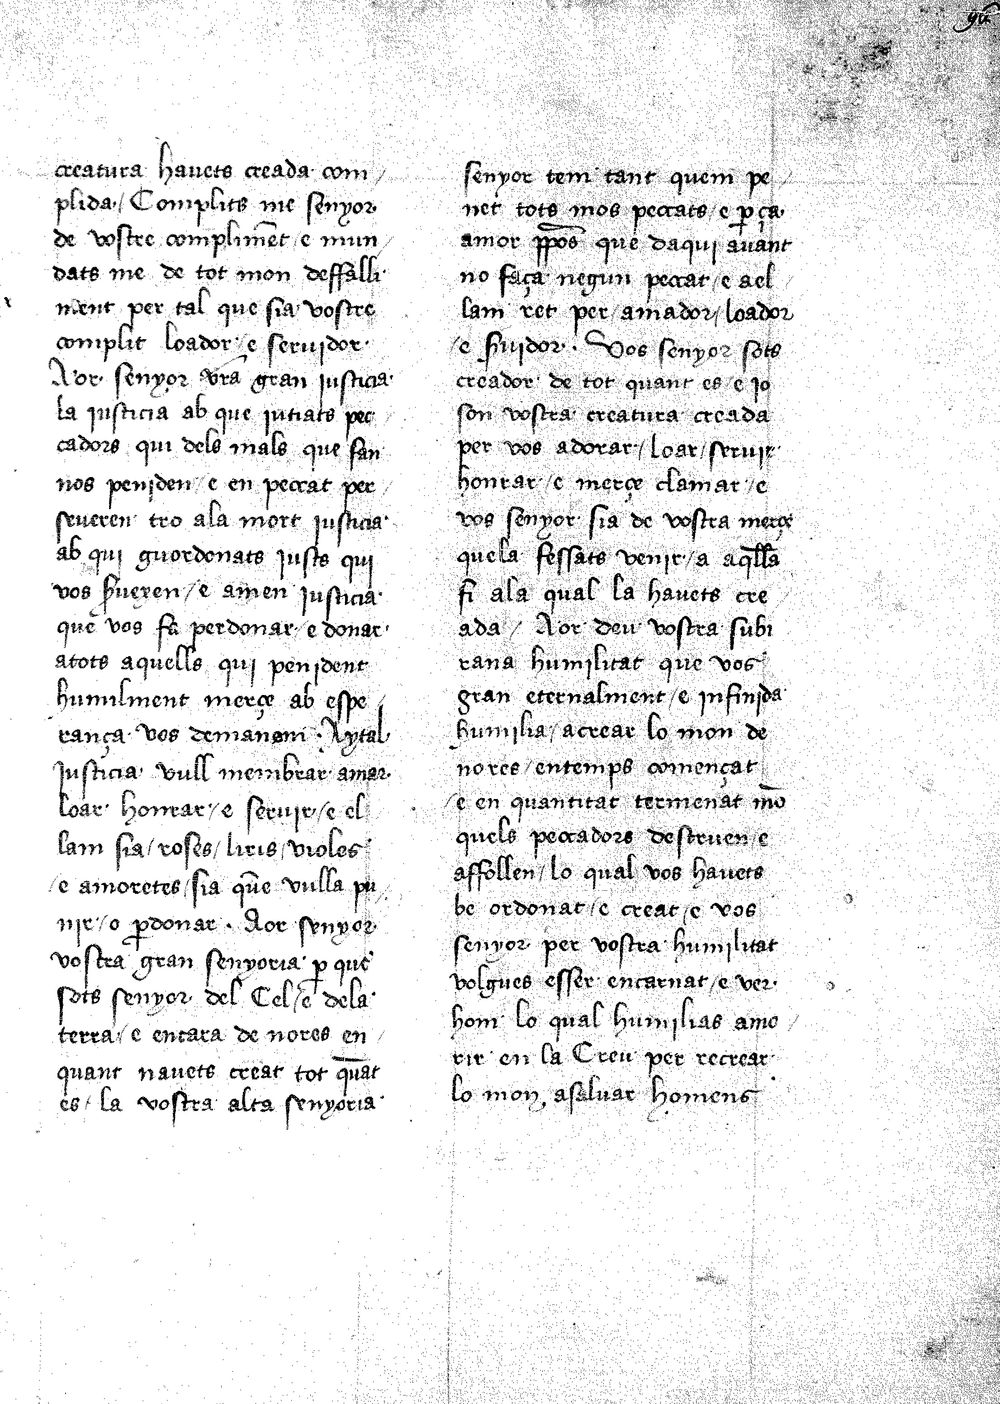 creatura havets creada com /
plida / Complits me senyor
de vostre complimēt / e mun /
dats me de tot mon deffalli
ment per tal que sia vostre
complit loador / e seruidor
Aor senyor vr̄a gran justicia
la justicia ab que jutiats pec
cadors qui dels mals que fan
nos peniden / e en peccat per /
seueren tro ala mort justicia
ab qui guordonats justs qui
vos s̄ueren / e amen justicia
que vos fa perdonar / e donar
atots aquells qui penident
humilment merçe ab espe /
rança vos demanam . Aytal
justicia vull membrar amar
loar honrar / e seruir / e el
lam sia / roses / liris / violes
/ e amoretes / sia q̄ue vulla pu /
nir / o p̱donar . Aor senyor
vostra gran senyoria p̱ que
sots senyor del Cel / e dela
terra / e encara de nores en /
quant hauets creat tot quāt
es / la vostra alta senyoria
senyor tem tant quem pe /
net tots mos peccats / e p̱ ça
amor p̱pos que daqui auant
no faça negun peccat / e ael
lam ret per / amador / loador
/ e s̄uidor . Vos senyor sots
creador de tot quant es / e jo
son vostra creatura creada
per vos adorar / loar / seruir
honrar / e merçe clamar / e
vos senyor sia de vostra merçe
quela fessats venir / a aq̄lla
fi ala qual la havets cre
ada / Aor deu vostra subi
rana humilitat que vos
gran eternalment / e infinida
humilia / acrear lo mon de
nores / entemps començat
/ e en quantitat termenat mō
quels peccadors destruen / e
affollen / lo qual vos havets
be ordonat / e creat / e vos
senyor per vostra humilitat
volgues esser encarnat / e ver
hom lo qual humilias amo /
rir en la Creu per recrear
lo mon , asaluar homens